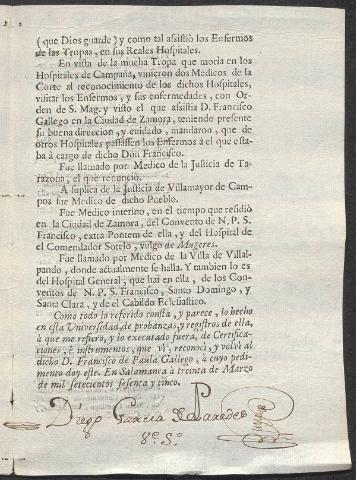 ( que Dios guarde ) y como tal asistió los Enfermos
de las Tropas, en sus Reales Hospitales.
En vista de la mucha Tropa que moria en los
Hospitales de Campaña, vinieron dos Medicos de la
Corte al reconocimiento de los dichos Hospitales,
visitar los Enfermos, y sus enfermedades, con Or-
den de S. Mag. y visto el que asistia D. Francisco
Gallego en la Ciudad de Zamora, teniendo presente
su buena direccion, y cuidado, mandaron, que de
otros Hospitales passassen los Enfermos à el que esta-
ba à cargo de dicho Don Francisco.
Fue llamado por Medico de la Justicia de Ta-
razona, el que renunciò.
A suplica de la Justicia de Villamayor de Cam-
pos fue Medico de dicho Pueblo.
Fue Medico interino, en el tiempo que residiò
en la Ciudad de Zamora, del Convento de N. P. S.
Francisco, extra Pontem de ella, y del Hospital de
el Comendador Sotelo, vulgo de Mugeres.
Fue llamado por Medico de la Villa de Villal-
pando, donde actualmente se halla. Y tambien lo es
del Hospital General, que hai en ella, de los Con-
ventos de N. P. S. Francisco, Santo Domingo, y
Santa Clara, y de el Cabildo Eclesiastico.
Como todo lo referido consta, y parece, lo hecho
en esta Universidad de probanzas, y registros de ella,
à que me refiero, y lo executado fuera, de Certifica-
ciones, è instrumentos, que vì, reconocì, y volvì al
dicho D. Francisco de Paula Gallego, à cuyo pedi-
mento doy este. En Salamanca à treinta de Marzo
de mil setecientos sesenta y cinco.
Diego Garcia de Paredes